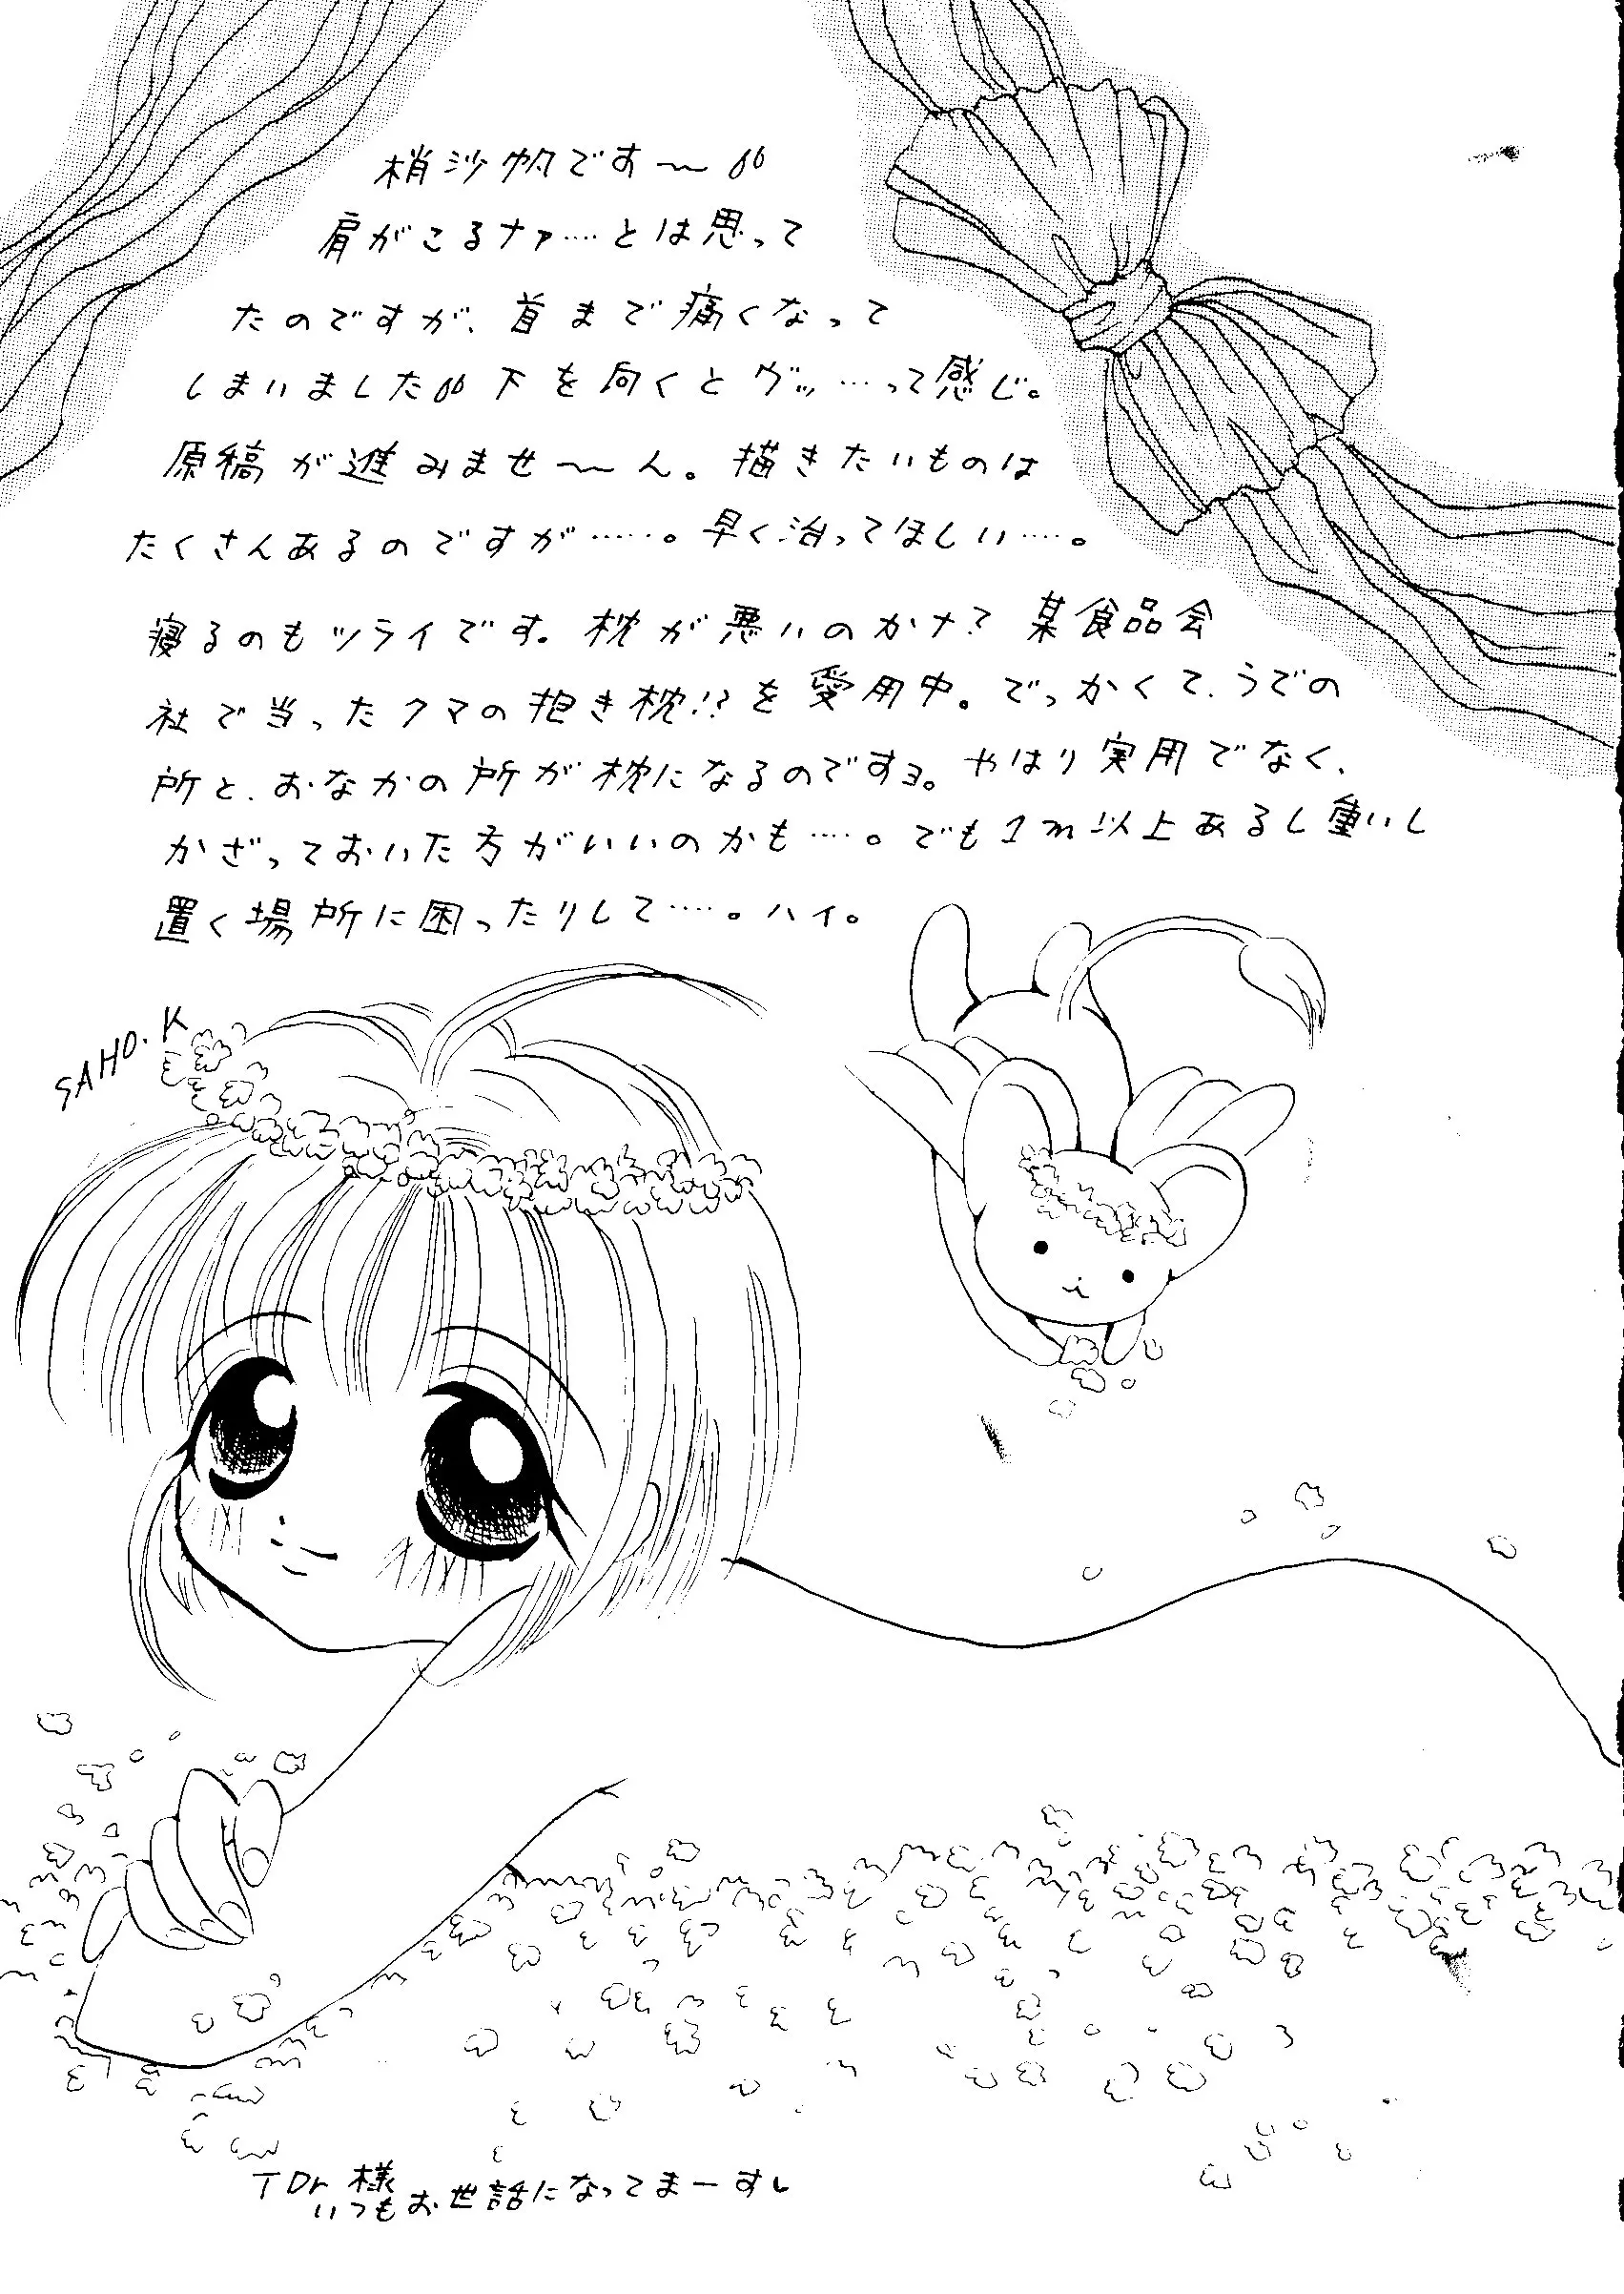 梢沙帆です〜
肩がこるナァ…とは思って
たのですが、首まで痛くなって
しまいました 下を向くと ヴッ…って感じ。
原稿が進みませ〜ん。描きたいものは
たくさんあるのですが……。早く治ってほしい…。
寝るのもツライです。枕が悪いのかナ? 某食品会
社で当ったクマの抱き枕!?を愛用中。でっかくて、うでの
所と、おなかの所が枕になるのですヨ。やはり実用でなく、
かざっておいた方がいいのかも…。でも1m以上あるし重いし
置く場所に困ったりして…。ハイ。
SAHO.K
TDr様
いつもお世話になってまーすし